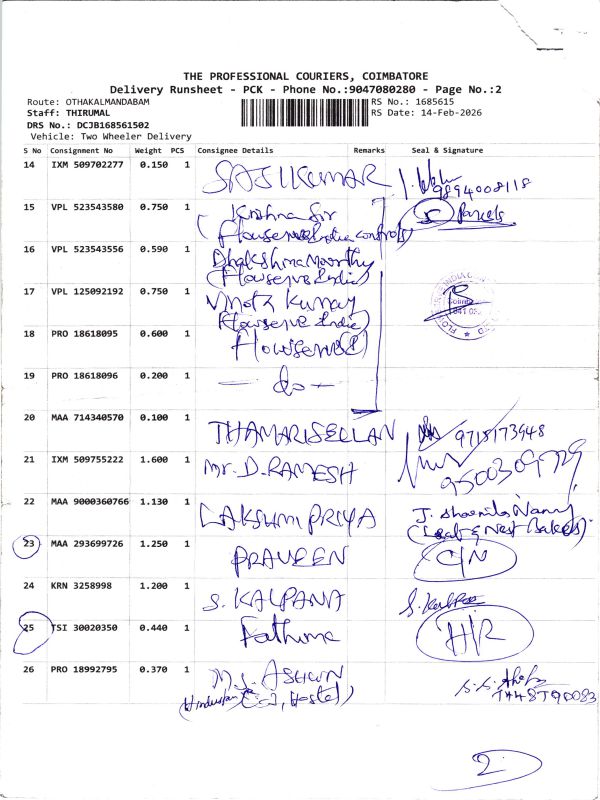 THE PROFESSIONAL COURIERS, COIMBATORE
Delivery Runsheet - PCK - Phone No.:9047080280 - Page No.:2
Route: OTHAKALMANDABAM
RS No.: 1685615
Staff: THIRUMAL
RS Date: 14-Feb-2026
DRS No.: DCJB168561502
Vehicle: Two Wheeler Delivery
S No Consignment No Weight PCS Consignee Details Remarks Seal & Signature
14 IXM 509702277 0.150 1 SASIKUMAR 9894008118
15 VPL 523543580 0.750 1 Krishna Sir 5 Parcels
(Flowserve India controls)
16 VPL 523543556 0.590 1 Dhakshinamoorthy
(Flowserve India)
17 VPL 125092192 0.750 1 Vinoth Kumar
Flowserve India)
18 PRO 18618095 0.600 1 Flowserve
19 PRO 18618096 0.200 1 — do —
20 MAA 714340570 0.100 1 THAMARISELLAN 9718173948
21 IXM 509755222 1.600 1 Mr. D. RAMESH
22 MAA 9000360766 1.130 1 LAKSHMI PRIYA
23 MAA 293699726 1.250 1 PRAVEEN C/N
24 KRN 3258998 1.200 1 S. KALPANA
25 TSI 30020350 0.440 1 Fathima H/R
26 PRO 18992795 0.370 1 ASHWIN
(Hindustan Hostel)
2